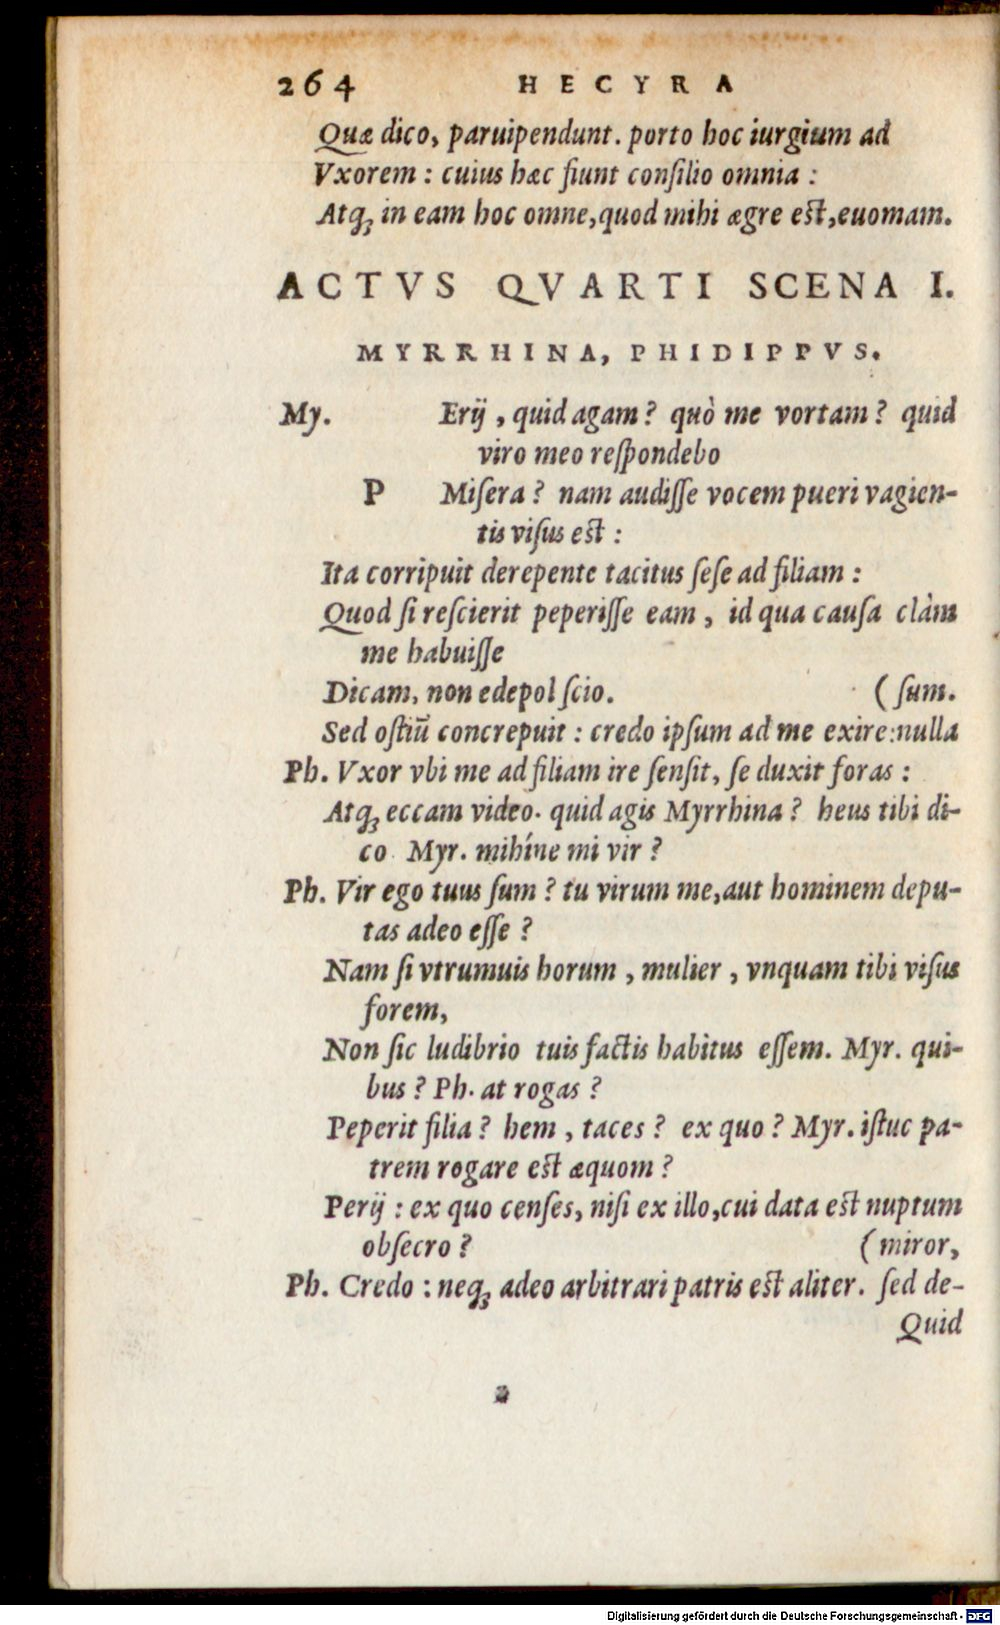 264 HECYRA
Quæ dico, paruipendunt. porto hoc iurgium ad
Vxorem : cuius hæc fiunt consilio omnia :
Atq; in eam hoc omne, quod mihi ægre est, euomam.
ACTVS QVARTI SCENA I.
MYRRHINA, PHIDIPPVS.
My. Erij , quid agam ? quò me vortam ? quid
viro meo respondebo
P Misera ? nam audisse vocem pueri vagien-
tis visus est :
Ita corripuit derepente tacitus sese ad filiam :
Quod si rescierit peperisse eam , id qua causa clàm
me habuisse
Dicam, non edepol scio. (sum.
Sed ostiũ concrepuit : credo ipsum ad me exire:nulla
Ph. Vxor vbi me ad filiam ire sensit, se duxit foras :
Atq; eccam video. quid agis Myrrhina ? heus tibi di-
co. Myr. mihíne mi vir ?
Ph. Vir ego tuus sum ? tu virum me, aut hominem depu-
tas adeo esse ?
Nam si vtrumuis horum , mulier , vnquam tibi visus
forem,
Non sic ludibrio tuis factis habitus essem. Myr. qui-
bus ? Ph. at rogas ?
Peperit filia ? hem , taces ? ex quo ? Myr. istuc pa-
trem rogare est æquom ?
Perij : ex quo censes, nisi ex illo, cui data est nuptum
obsecro ? (miror,
Ph. Credo : neq; adeo arbitrari patris est aliter. sed de-
Quid
Digitalisierung gefördert durch die Deutsche Forschungsgemeinschaft - DFG